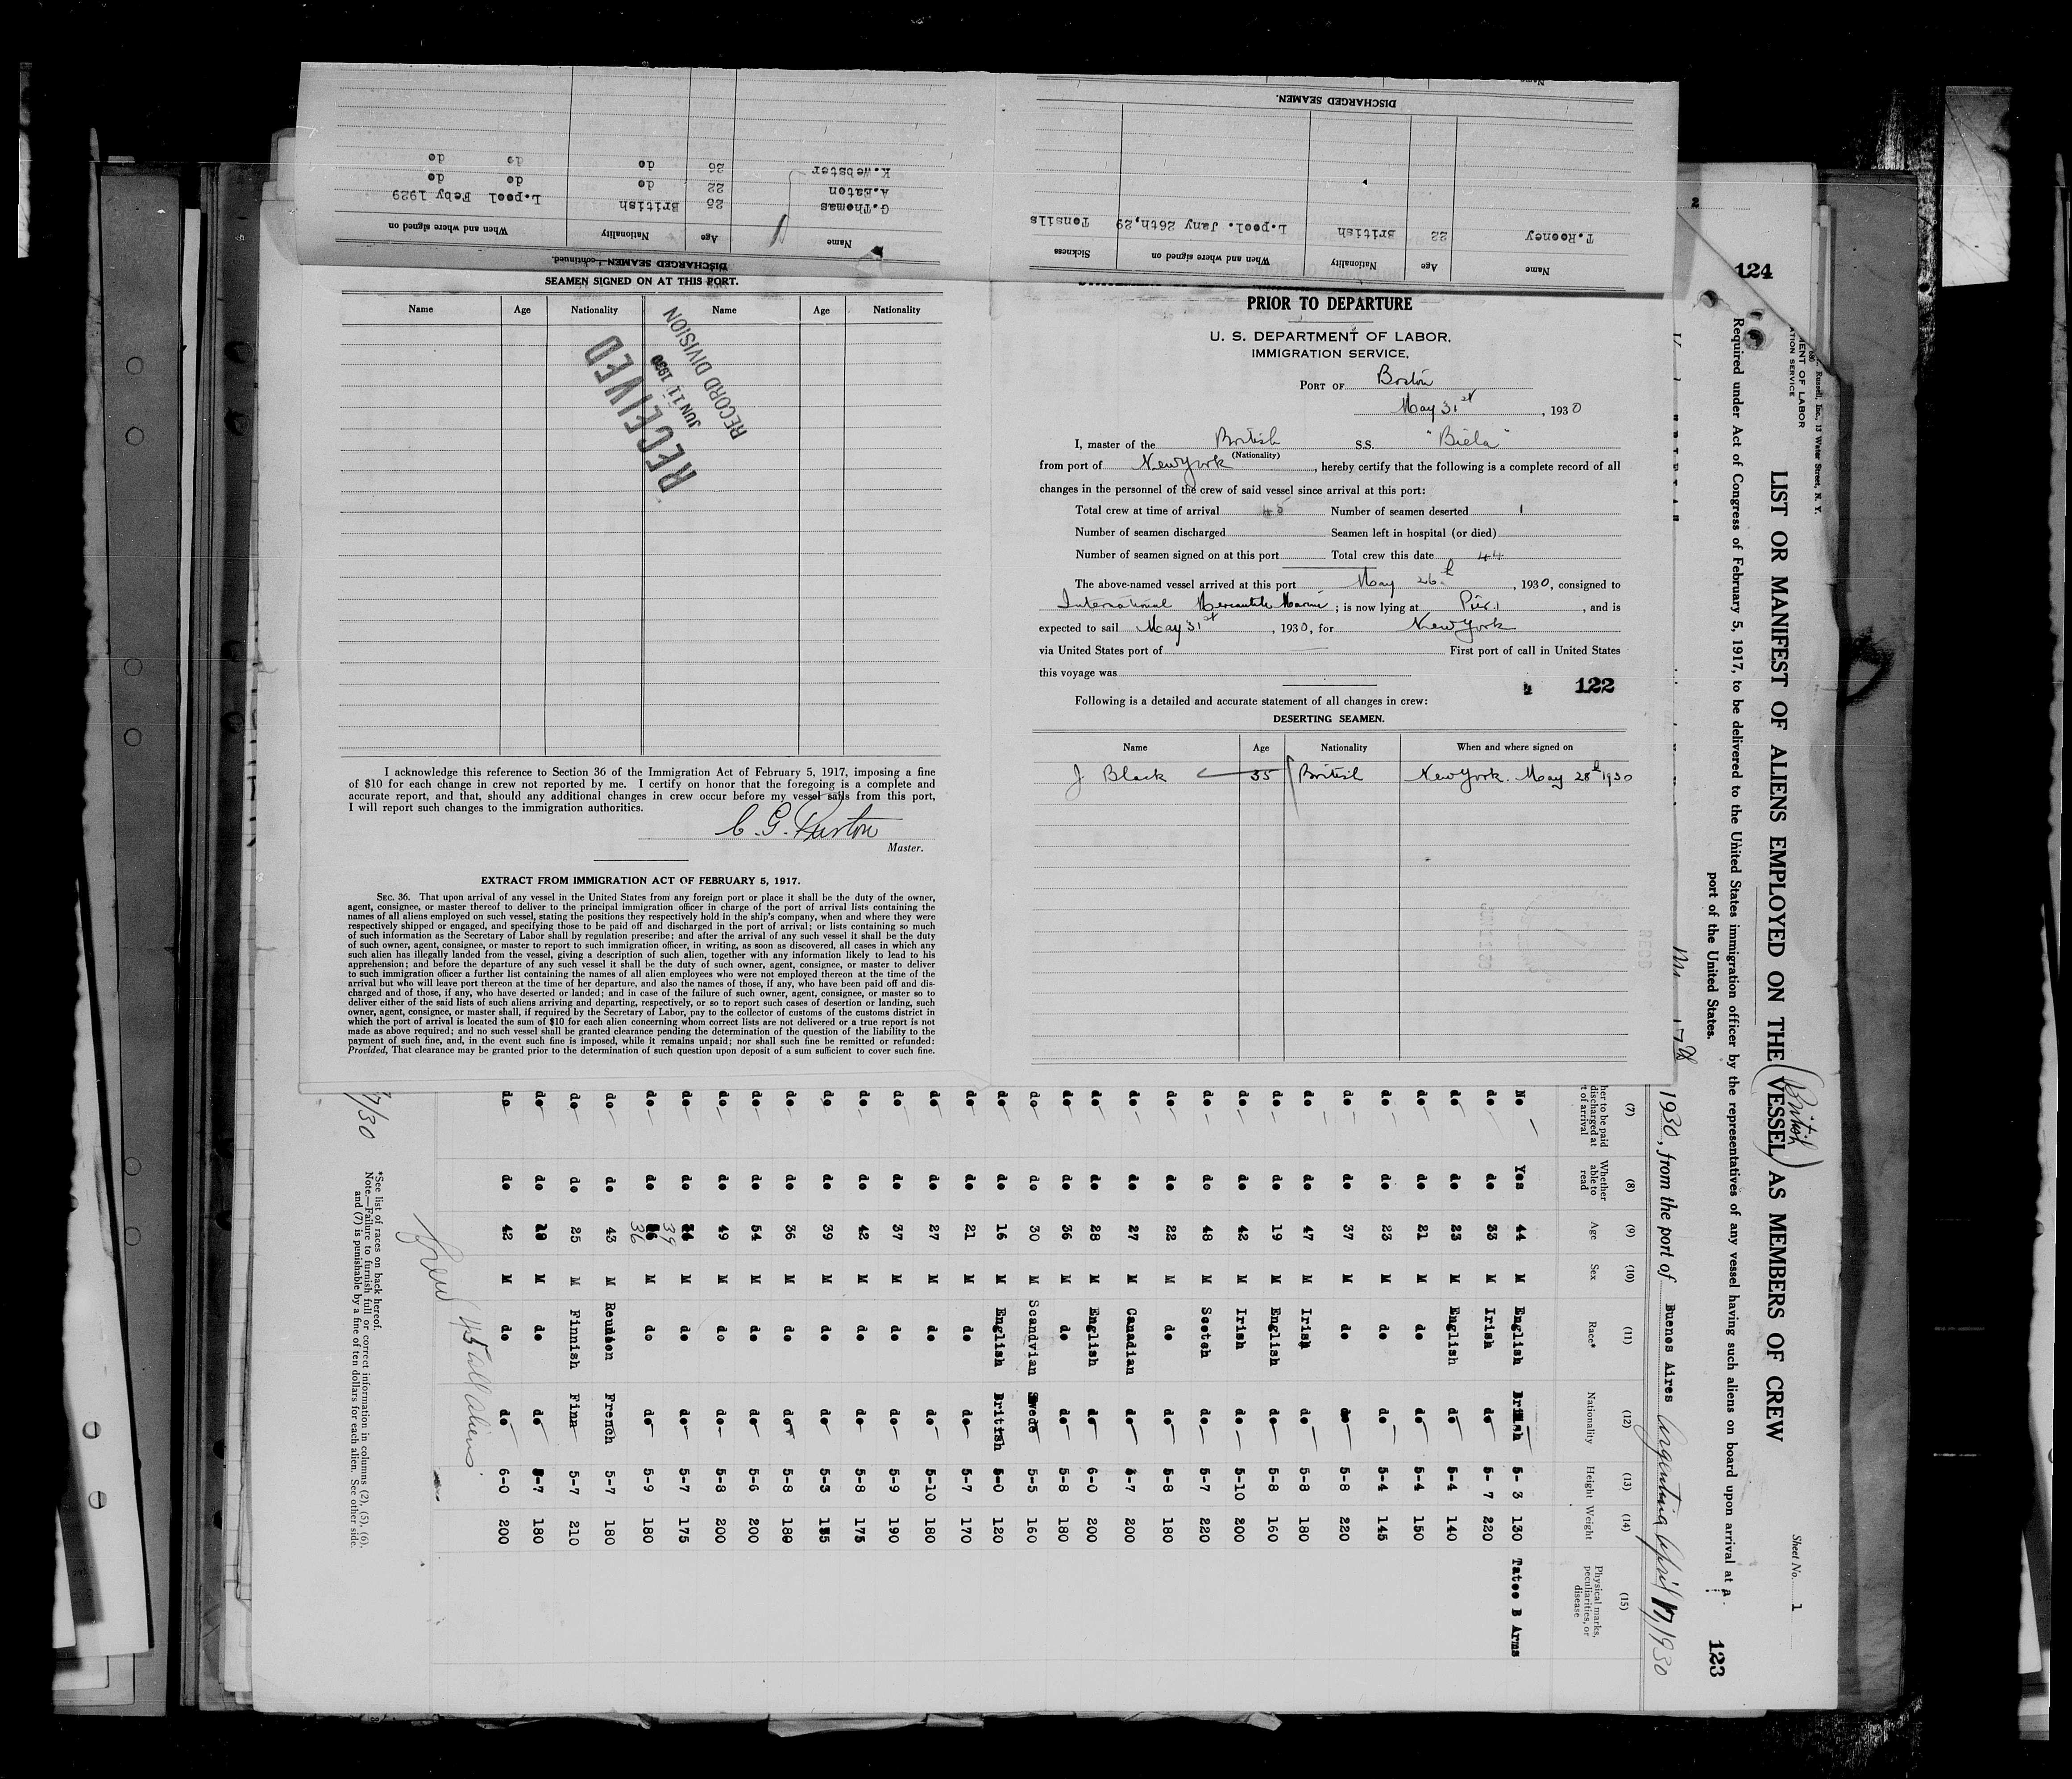 DISCHARGED SEAMEN.
Name Age Nationality When and where signed on Sickness
T.Rooney 22 British L.pool. Jany 26th,29 Tonsils
DISCHARGED SEAMEN—continued.
Name Age Nationality When and where signed on
G.Thomas 25 British L.pool Feby 1929
A.Eaton 22 do do do
K.Webster 26 do do do
SEAMEN SIGNED ON AT THIS PORT.
Name Age Nationality Name Age Nationality
RECEIVED
JUN 11 1930
RECORD DIVISION
I acknowledge this reference to Section 36 of the Immigration Act of February 5, 1917, imposing a fine
of $10 for each change in crew not reported by me. I certify on honor that the foregoing is a complete and
accurate report, and that, should any additional changes in crew occur before my vessel sails from this port,
I will report such changes to the immigration authorities.
C. G.
Master.
EXTRACT FROM IMMIGRATION ACT OF FEBRUARY 5, 1917.
SEC. 36. That upon arrival of any vessel in the United States from any foreign port or place it shall be the duty of the owner,
agent, consignee, or master thereof to deliver to the principal immigration officer in charge of the port of arrival lists containing the
names of all aliens employed on such vessel, stating the positions they respectively hold in the ship's company, when and where they were
respectively shipped or engaged, and specifying those to be paid off and discharged in the port of arrival; or lists containing so much
of such information as the Secretary of Labor shall by regulation prescribe; and after the arrival of any such vessel it shall be the duty
of such owner, agent, consignee, or master to report to such immigration officer, in writing, as soon as discovered, all cases in which any
such alien has illegally landed from the vessel, giving a description of such alien, together with any information likely to lead to his
apprehension; and before the departure of any such vessel it shall be the duty of such owner, agent, consignee, or master to deliver
to such immigration officer a further list containing the names of all alien employees who were not employed thereon at the time of the
arrival but who will leave port thereon at the time of her departure, and also the names of those, if any, who have been paid off and dis-
charged and of those, if any, who have deserted or landed; and in case of the failure of such owner, agent, consignee, or master so to
deliver either of the said lists of such aliens arriving and departing, respectively, or so to report such cases of desertion or landing, such
owner, agent, consignee, or master shall, if required by the Secretary of Labor, pay to the collector of customs of the customs district in
which the port of arrival is located the sum of $10 for each alien concerning whom correct lists are not delivered or a true report is not
made as above required; and no such vessel shall be granted clearance pending the determination of the question of the liability to the
payment of such fine, and, in the event such fine is imposed, while it remains unpaid; nor shall such fine be remitted or refunded:
Provided, That clearance may be granted prior to the determination of such question upon deposit of a sum sufficient to cover such fine.
PRIOR TO DEPARTURE
U. S. DEPARTMENT OF LABOR,
IMMIGRATION SERVICE,
PORT OF Boston
May 31st, 1930
I, master of the British S.S. "Biela"
(Nationality)
from port of New York, hereby certify that the following is a complete record of all
changes in the personnel of the crew of said vessel since arrival at this port:
Total crew at time of arrival 45 Number of seamen deserted 1
Number of seamen discharged Seamen left in hospital (or died)
Number of seamen signed on at this port Total crew this date 44
The above-named vessel arrived at this port May 26th, 1930, consigned to
International Mercantile Marine; is now lying at Pier 1, and is
expected to sail May 31st, 1930, for New York
via United States port of First port of call in United States
this voyage was
122
Following is a detailed and accurate statement of all changes in crew:
DESERTING SEAMEN.
Name Age Nationality When and where signed on
J Black 35 British New York. May 28th 1930
2
124
Russell, Inc., 13 Water Street, N. Y.
LIST OR MANIFEST OF ALIENS EMPLOYED ON THE VESSEL AS MEMBERS OF CREW
(British)
Sheet No. 1
Required under Act of Congress of February 5, 1917, to be delivered to the United States immigration officer by the representatives of any vessel having such aliens on board upon arrival at a
port of the United States.
123
1930, from the port of Buenos Aires Argentina April 17/1930
(7) (8) (9) (10) (11) (12) (13) (14) (15)
her to be paid discharged at t of arrival Whether able to read Age Sex Race* Nationality Height Weight Physical marks, peculiarities, or disease
No Yes 44 M English British 5-3 130 Tatoo B Arms
do do 33 M Irish do 5-7 220
do do 23 M English do 5-4 140
do do 21 M do do 5-4 150
do do 23 M do do 5-4 145
do do 37 M do do 5-8 220
do do 47 M Irish do 5-8 180
do do 19 M English do 5-8 160
do do 42 M Irish do 5-10 200
do do 48 M Scotch do 5-7 220
do do 22 M do do 5-8 180
do do 27 M Canadian do 5-7 200
do do 28 M English do 6-0 200
do do 36 M do do 5-8 180
do do 30 M Scandvian Swede 5-5 160
do do 16 M English British 5-0 120
do do 21 M do do 5-7 170
do do 27 M do do 5-10 180
do do 37 M do do 5-9 190
do do 42 M do do 5-8 175
do do 39 M do do 5-3 135
do do 36 M do do 5-8 180
do do 54 M do do 5-6 200
do do 49 M do do 5-8 200
do do 39 M do do 5-7 175
do do 36 M do do 5-9 180
do do 43 M Reunion French 5-7 180
do do 25 M Finnish Finn 5-7 210
do do 19 M do do 5-7 180
do do 42 M do do 6-0 200
Crew 45 all aliens
*See list of races on back hereof.
Note.—Failure to furnish full or correct information in columns (2), (5), (6),
and (7) is punishable by a fine of ten dollars for each alien. See other side.